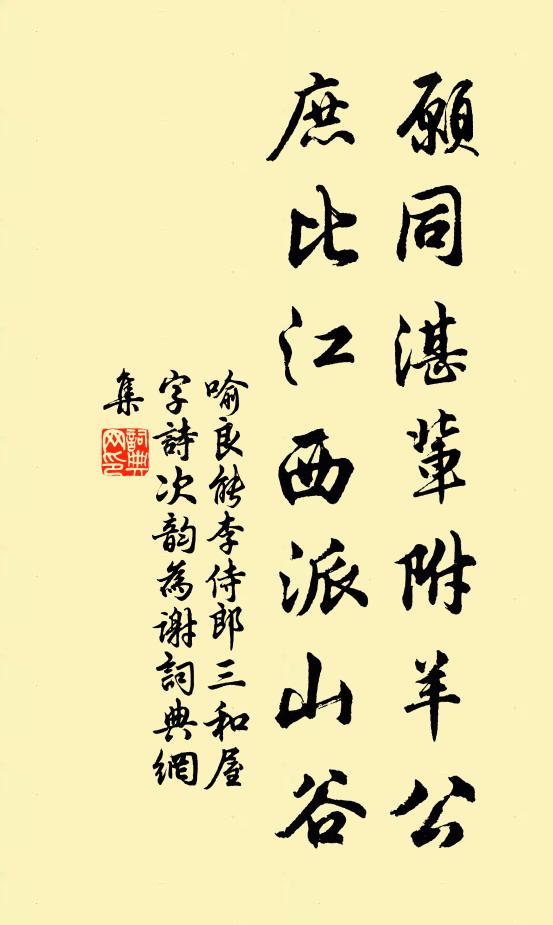 願同湛輩附羊公
庶比江西派山谷
喻良能李侍郎三和屋
字詩次韵為謝詞典網
集
詞典
网印